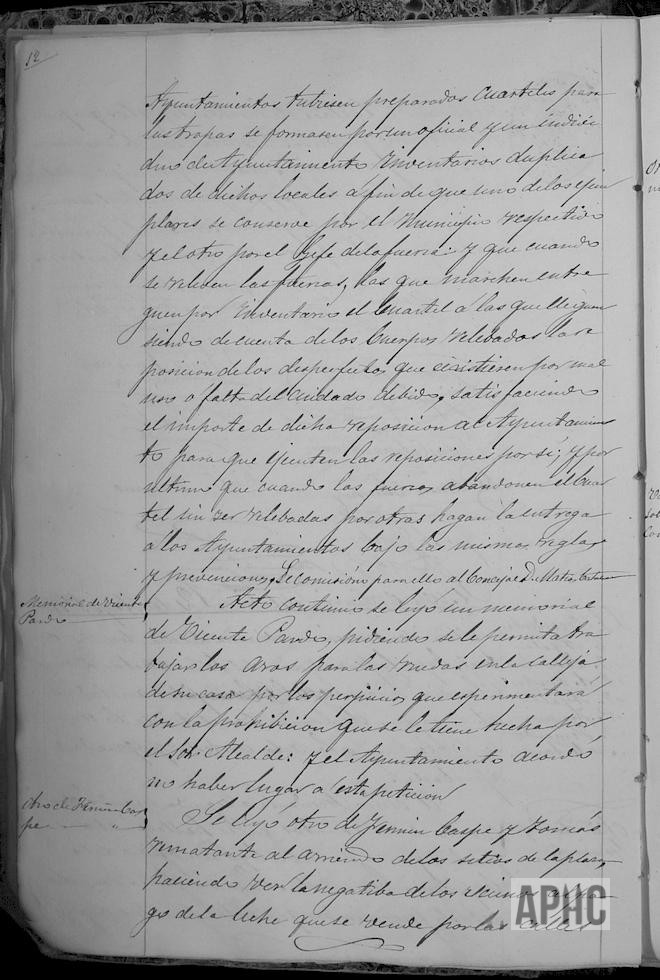 12
Ayuntamientos tubiesen preparados Cuarteles para
las tropas se formasen por un oficial y un indivi
duo del Ayuntamiento Inventarios duplica
dos de dichos locales a fin de que uno de los ejem
plares se conserve por el Municipio respectivo
y el otro por el Gefe de la fuerza: y que cuando
se releven las fuerzas, las que marchen entre
guen por Inventario el Cuartel a las que lleguen
siendo de cuenta de los Cuerpos relebados la re
posicion de los desperfectos que existieren por mal
uso o falta del cuidado debido, satisfaciendo
el importe de dicha reposicion al Ayuntamien
to para que ejecuten las reposiciones por sí; y por
ultimo que cuando las fuerzas abandonen el Cuar
tel sin ser relebadas por otras hagan la entrega
a los Ayuntamientos bajo las mismas reglas
y prevenciones. Se comisionó para ello al Concejal D. Matias
Memorial de Vicente
Pardo
Acto continuo se leyó un memorial
de Vicente Pardo, pidiendo se le permita tra
bajar los aros para las ruedas en la calleja
de su casa por los perjuicios que esperimentará
con la prohibicion que se le tiene hecha por
el Sor. Alcalde: y el Ayuntamiento acordó
no haber lugar a esta peticion
Otro de Fermin Cas
pe
Se leyó otro de Fermin Caspe y Tomás
rematante al arriendo de los sitios de la plaza,
haciendo ver la negatiba de los
gos de la leche que se vende por las calles
APHC